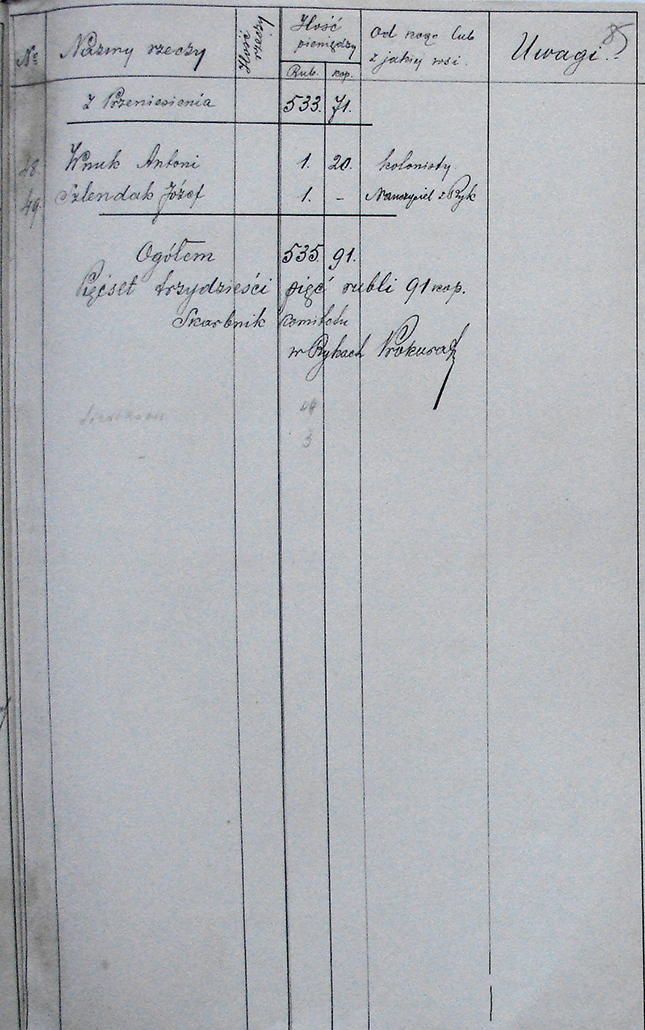 85
№ Nazwy rzeczy Ilość rzeczy Ilość pieniędzy Od kogo lub z jakiej wsi. Uwagi.
Rub. kop.
Z Przeniesienia 533. 71.
48 Wnuk Antoni 1. 20. kolonisty
49. Szlendak Józef 1. - Nauczyciel z Ryk
Ogółem 535. 91.
Pięćset trzydzieści pięć rubli 91 kop.
Skarbnik komitetu
w Rykach Prokurat